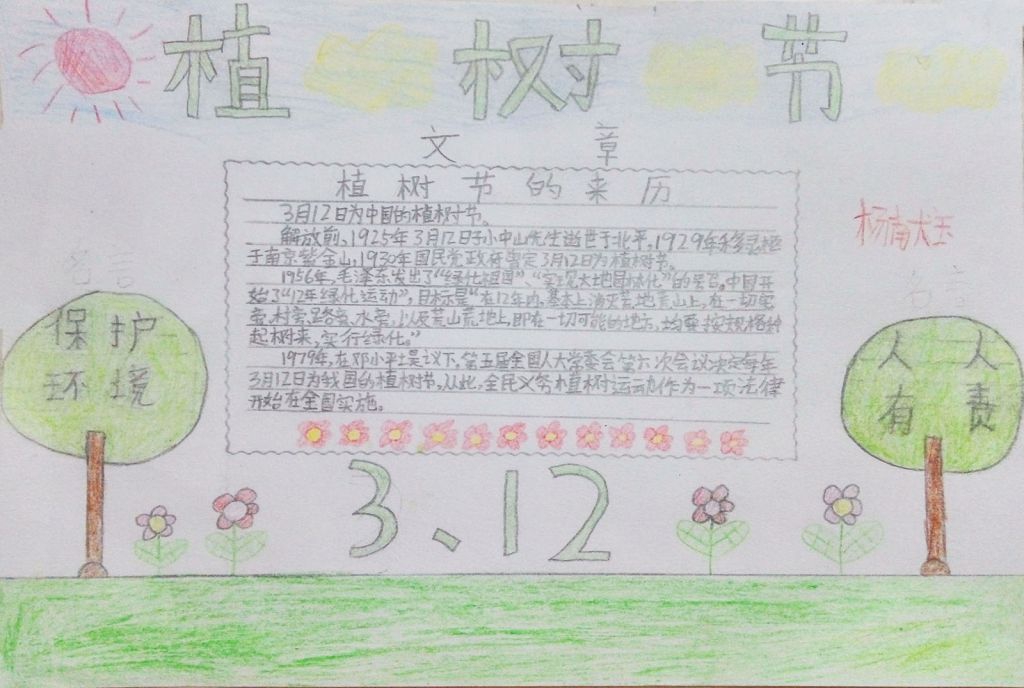 植树节
文章
植树节的来历
3月12日为中国的植树节。
解放前、1925年3月12日孙中山先生逝世于北平，1929年
于南京紫金山，1930年国民党政府 定3月12日为植树节。
1956年，毛泽东发出了“绿化祖国”、“实现大地园林化”的号召。中国开
始了“12年绿化运动”，目标是“在12年内，基本上消灭荒地荒山，在一切宅
旁、村旁、路旁、水旁，以及荒山荒地上，即在一切可能的地方，均要按规格种
起树来，实行绿化。”
1979年，在邓小平提议下，第五届全国人大常委会第六次会议决定每年
3月12日为我国的植树节。从此，全民义务植树运动作为一项法律
开始在全国实施。
名言
保护
环境
名言
人人
有责
3、12